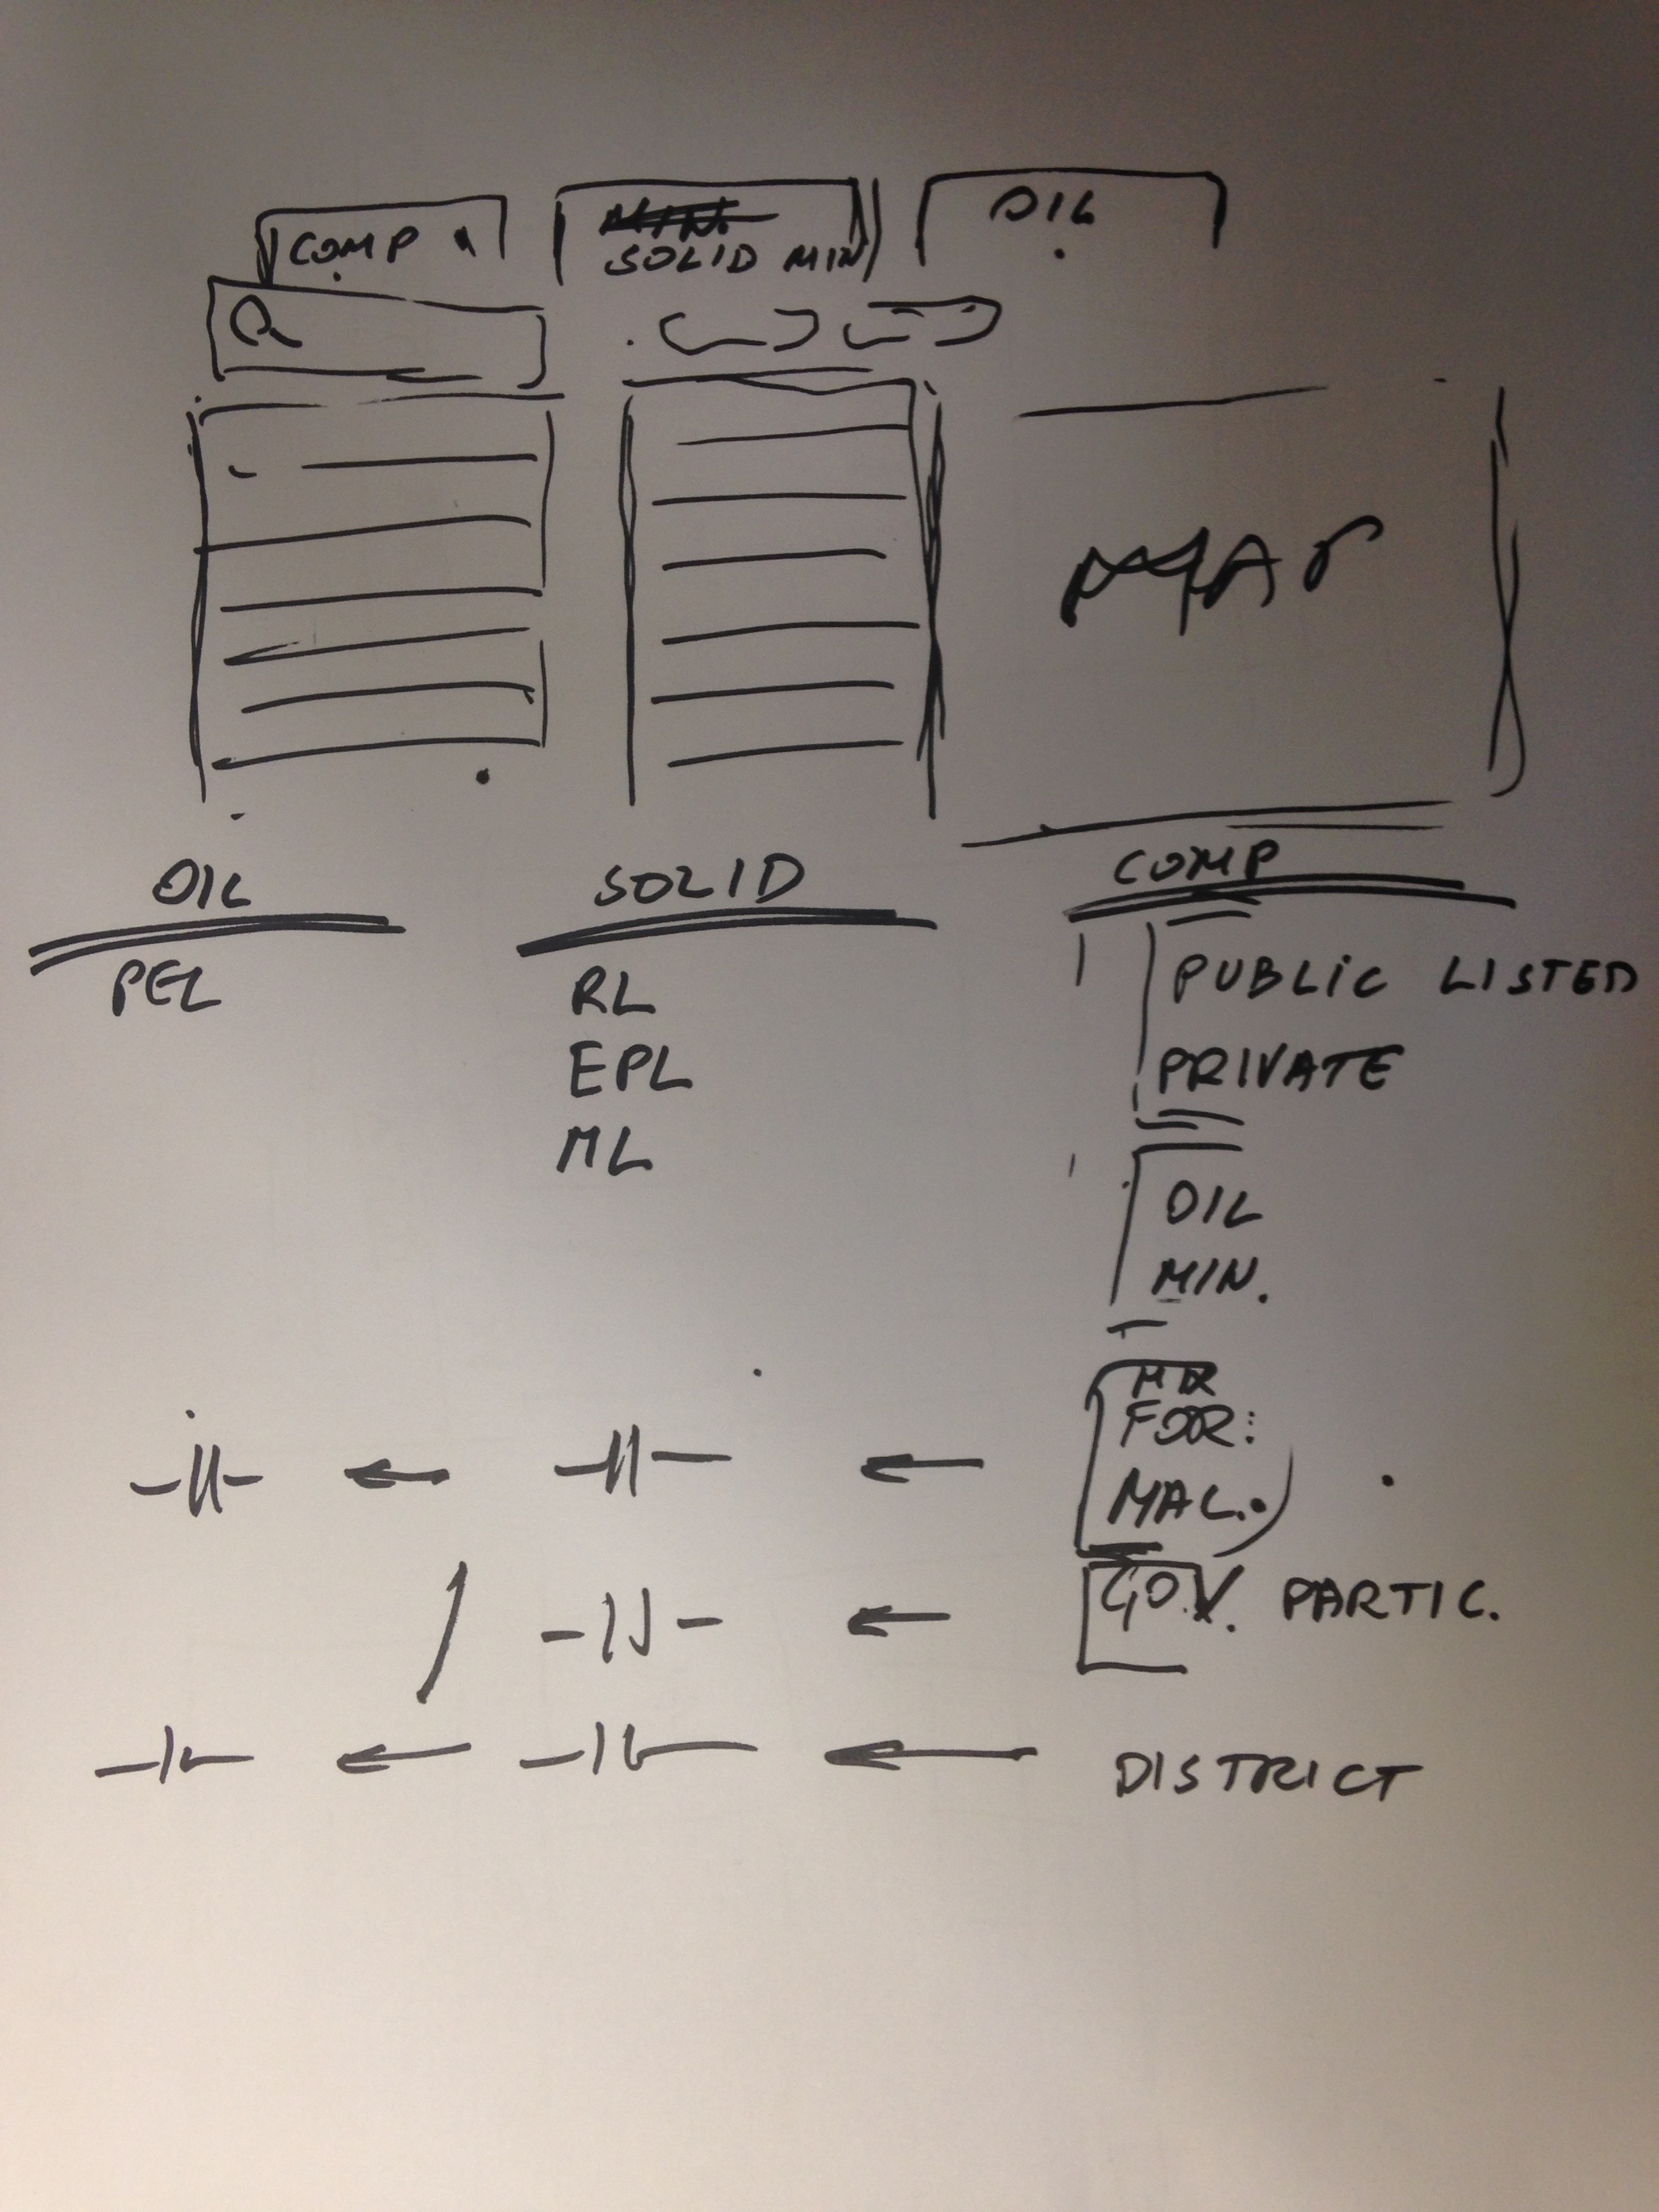 COMP
SOLID MIN
OIL
MAP
OIL
PEL
SOLID
RL
EPL
ML
COMP
PUBLIC LISTED
PRIVATE
OIL
MIN.
FOR:
MAL.
GOV. PARTIC.
DISTRICT